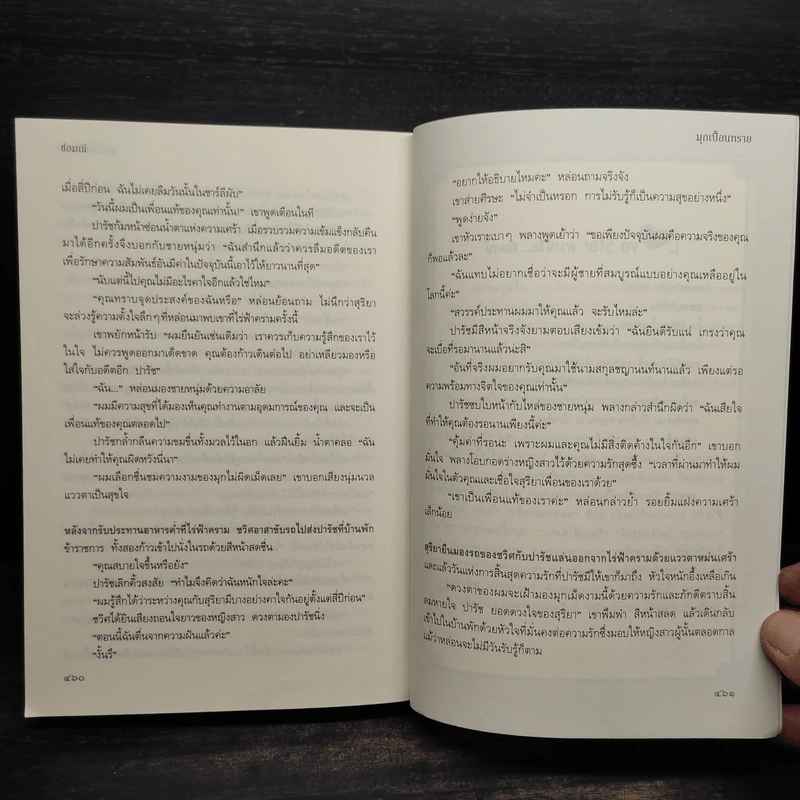 ช่อมณี
เมื่อสี่ปีก่อน ฉันไม่เคยลืมวันนั้นในชาร์ลีผับ”
“วันนี้ผมเป็นเพื่อนแท้ของคุณเท่านั้น!” เขาพูดเตือนในที
ปารัชก้มหน้าซ่อนน้ำตาแห่งความเศร้า เมื่อรวบรวมความเข้มแข็งกลับคืน
มาได้อีกครั้งจึงบอกกับชายหนุ่มว่า “ฉันสำนึกแล้วว่าควรลืมอดีตของเรา
เพื่อรักษาความสัมพันธ์อันมีค่าในปัจจุบันนี้เอาไว้ให้ยาวนานที่สุด”
“นับแต่นี้ไปคุณไม่มีอะไรคาใจอีกแล้วใช่ไหม”
“คุณทราบจุดประสงค์ของฉันหรือ” หล่อนย้อนถาม ไม่นึกว่าสุริยา
จะล่วงรู้ความตั้งใจลึกๆที่หล่อนมาพบเขาที่ไร่ฟ้าครามครั้งนี้
เขาพยักหน้ารับ “ผมยืนยันเช่นเดิมว่า เราควรเก็บความรู้สึกของเราไว้
ในใจ ไม่ควรพูดออกมาเด็ดขาด คุณต้องก้าวเดินต่อไป อย่าเหลียวมองหรือ
ใส่ใจกับอดีตอีก ปารัช”
“ฉัน...” หล่อนมองชายหนุ่มด้วยความอาลัย
“ผมมีความสุขที่ได้มองเห็นคุณทำงานตามอุดมการณ์ของคุณ และจะเป็น
เพื่อนแท้ของคุณตลอดไป”
ปารัชกล้ำกลืนความขมขื่นทั้งมวลไว้ในอก แล้วฝืนยิ้ม น้ำตาคลอ “ฉัน
ไม่เคยทำให้คุณผิดหวังนี่นา”
“ผมเลือกชื่นชมความงามของมุกไม่ผิดเม็ดเลย” เขาบอกเสียงนุ่มนวล
แววตาเป็นสุขใจ
หลังจากรับประทานอาหารค่ำที่ไร่ฟ้าคราม ชวิศอาสาขับรถไปส่งปารัชที่บ้านพัก
ข้าราชการ ทั้งสองก้าวเข้าไปนั่งในรถด้วยสีหน้าสดชื่น
“คุณสบายใจขึ้นหรือยัง”
ปารัชเลิกคิ้วสงสัย “ทำไมจึงคิดว่าฉันหนักใจล่ะคะ”
“ผมรู้สึกได้ว่าระหว่างคุณกับสุริยามีบางอย่างคาใจกันอยู่ตั้งแต่สี่ปีก่อน”
ชวิศได้ยินเสียงถอนใจยาวของหญิงสาว ดวงตามองปารัชนิ่ง
“ตอนนี้ฉันตื่นจากความฝันแล้วค่ะ”
“งั้นรึ”
๔๖๐
มุกเปื้อนทราย
“อยากให้อธิบายไหมคะ” หล่อนถามจริงจัง
เขาส่ายศีรษะ “ไม่จำเป็นหรอก การไม่รับรู้ก็เป็นความสุขอย่างหนึ่ง”
“พูดง่ายจัง”
เขาหัวเราะเบาๆ พลางพูดเย้าว่า “ขอเพียงปัจจุบันผมคือความจริงของคุณ
ก็พอแล้วละ”
“ฉันแทบไม่อยากเชื่อว่าจะมีผู้ชายที่สมบูรณ์แบบอย่างคุณเหลืออยู่ใน
โลกนี้ค่ะ”
“สวรรค์ประทานผมมาให้คุณแล้ว จะรับไหมล่ะ”
ปารัชมีสีหน้าจริงจังยามตอบเสียงเข้มว่า “ฉันยินดีรับแน่ เกรงว่าคุณ
จะเบื่อที่รอมานานแล้วน่ะสิ”
“อันที่จริงผมอยากรับคุณมาใช้นามสกุลชญานนท์นานแล้ว เพียงแต่รอ
ความพร้อมทางจิตใจของคุณเท่านั้น”
ปารัชซบใบหน้ากับไหล่ของชายหนุ่ม พลางกล่าวสำนึกผิดว่า “ฉันเสียใจ
ที่ทำให้คุณต้องรอนานเพียงนี้ค่ะ”
“คุ้มค่าที่รอนะ เพราะผมและคุณไม่มีสิ่งติดค้างในใจกันอีก” เขาบอก
มั่นใจ พลางโอบกอดร่างหญิงสาวไว้ด้วยความรักสุดซึ้ง “เวลาที่ผ่านมาทำให้ผม
มั่นใจในตัวคุณและเชื่อใจสุริยาเพื่อนของเราด้วย”
“เขาเป็นเพื่อนแท้ของเราค่ะ” หล่อนกล่าวย้ำ รอยยิ้มแฝงความเศร้า
เล็กน้อย
สุริยายืนมองรถของชวิศกับปารัชแล่นออกจากไร่ฟ้าครามด้วยแววตาหม่นเศร้า
และแล้ววันแห่งการสิ้นสุดความรักที่ปารัชมีให้เขาก็มาถึง หัวใจหนักอึ้งเหลือเกิน
“ดวงตาของผมจะเฝ้ามองมุกเม็ดงามนี้ด้วยความรักและภักดีตราบสิ้น
ลมหายใจ ปารัช ยอดดวงใจของสุริยา” เขาพึมพำ สีหน้าสลด แล้วเดินกลับ
เข้าไปในบ้านพักด้วยหัวใจที่มั่นคงต่อความรักซึ่งมอบให้หญิงสาวผู้นั้นตลอดกาล
แม้ว่าหล่อนจะไม่มีวันรับรู้ก็ตาม
๔๖๑